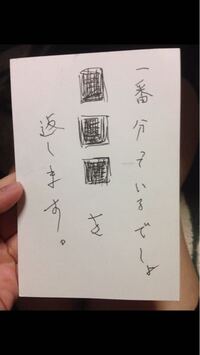 一番分っているでしょ
を
返します。